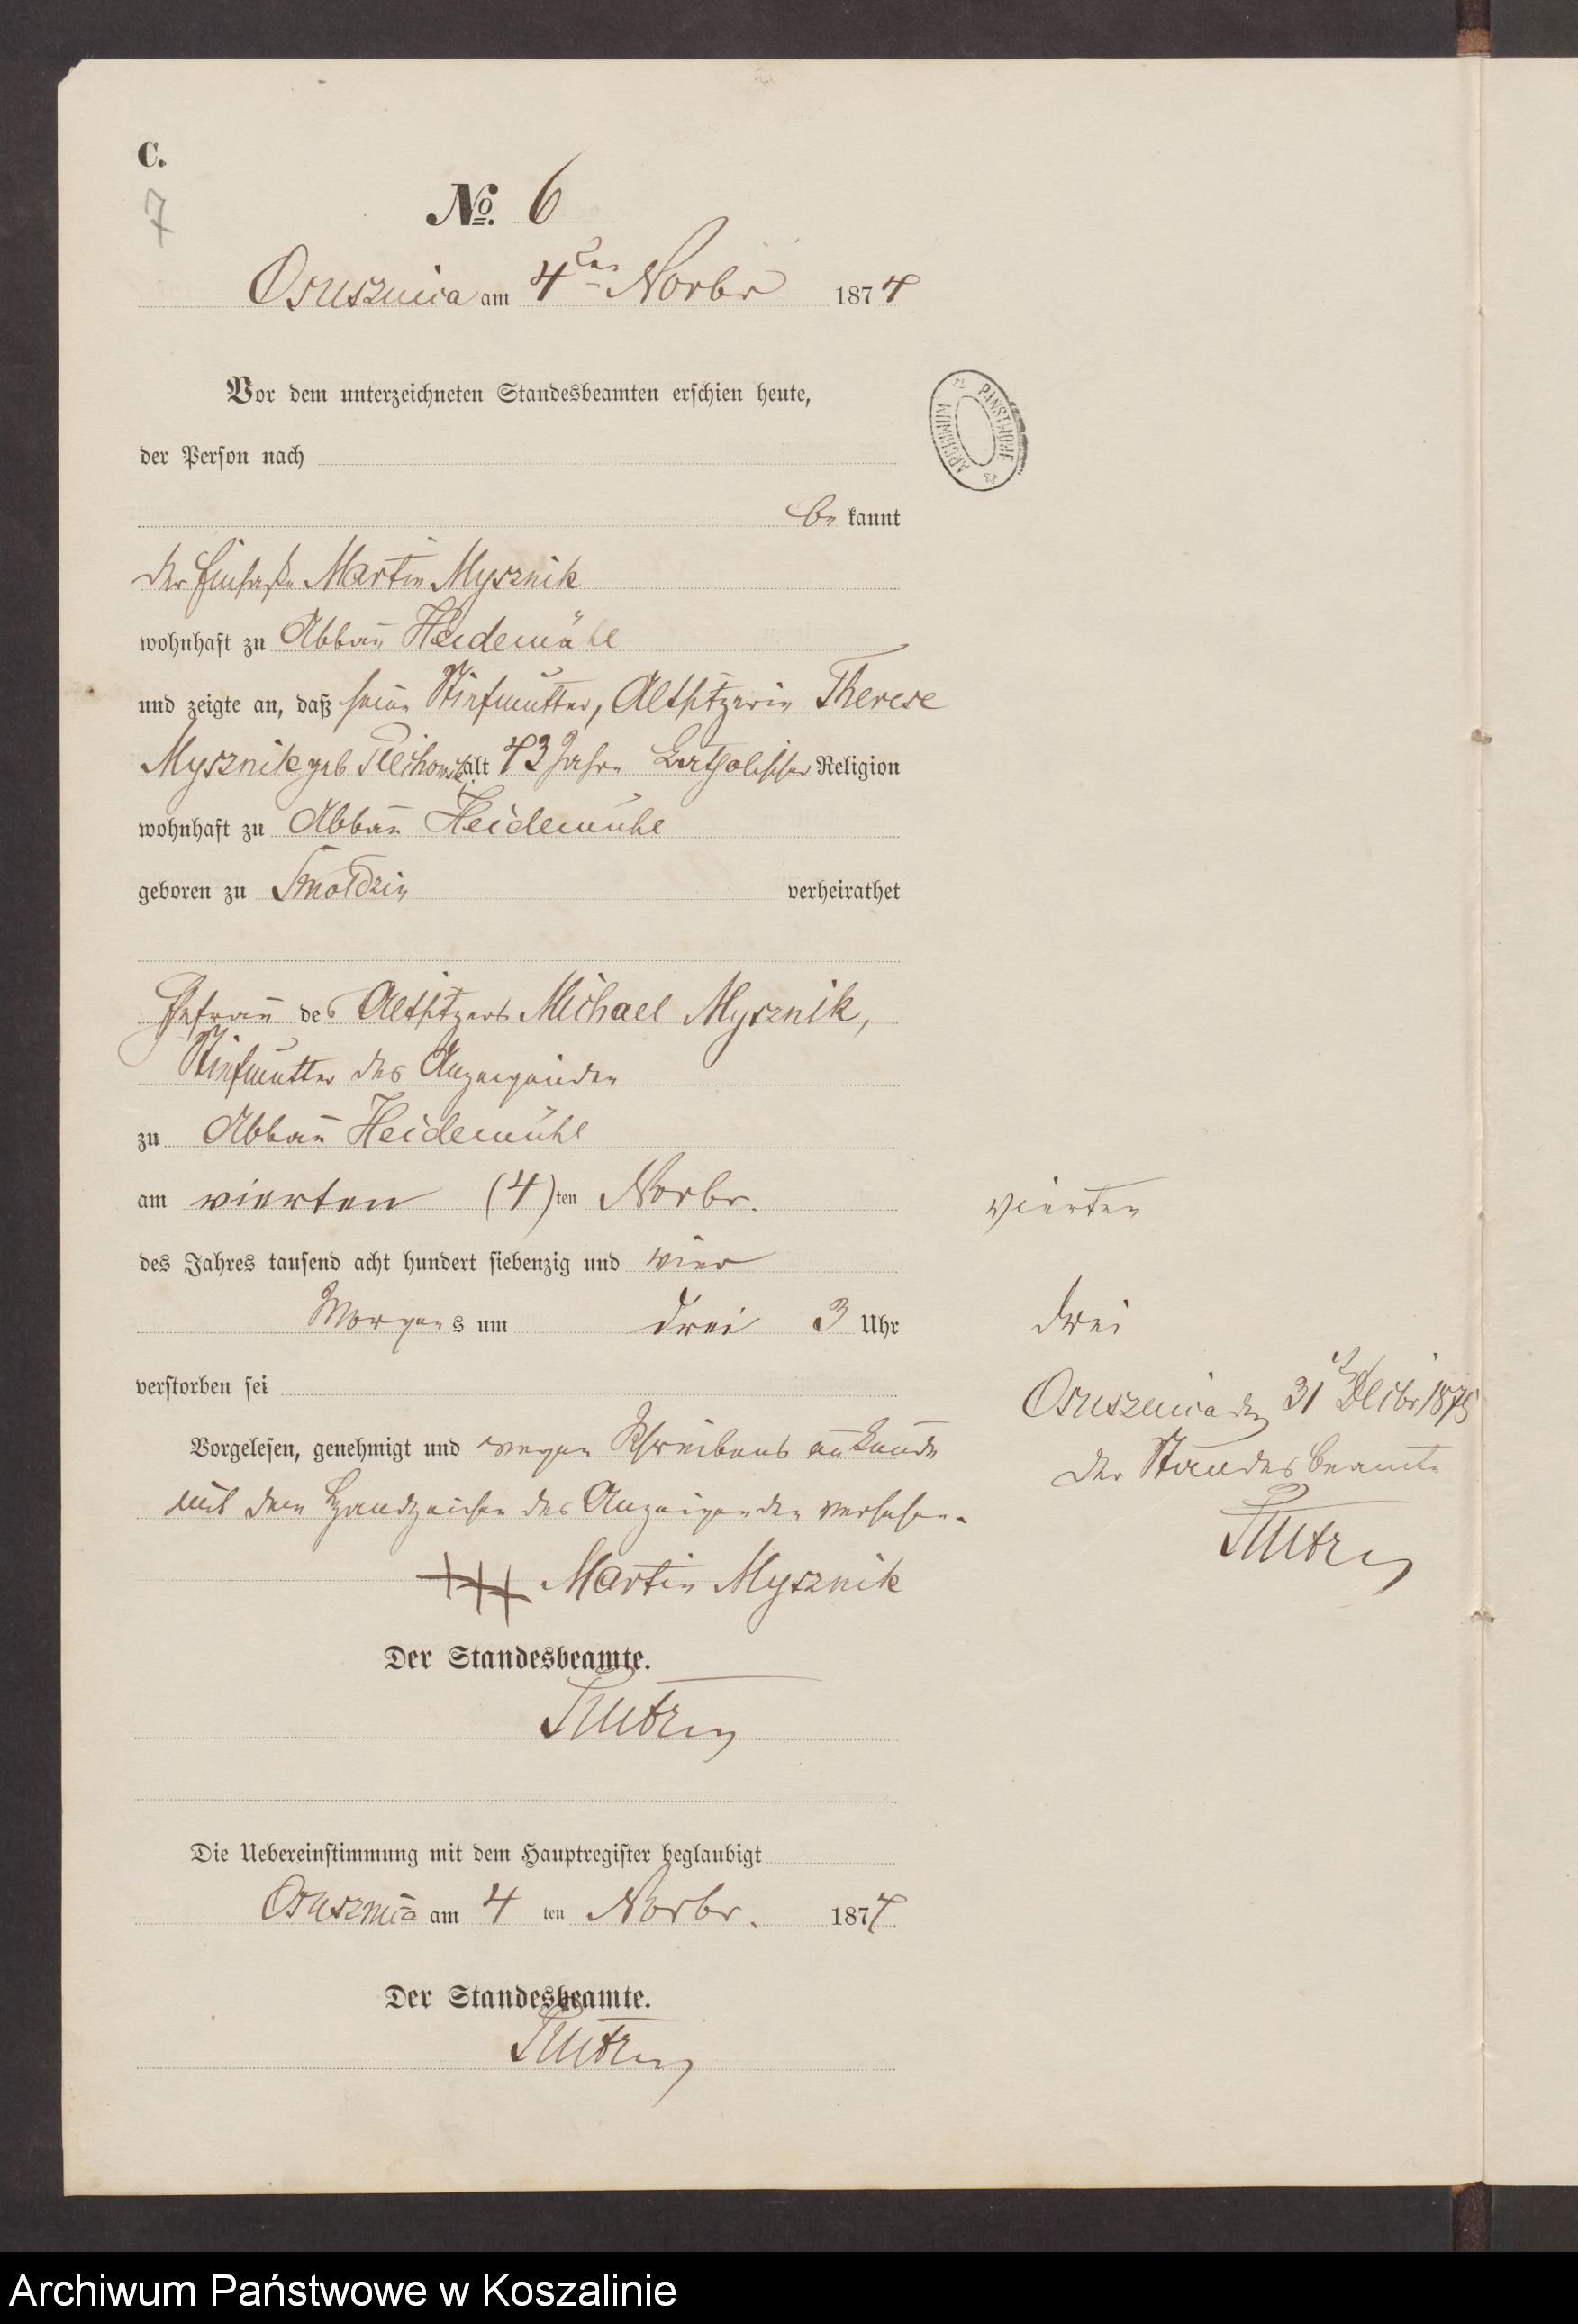 C.
7
No. 6
Osusznica am 4ten Novbr 1874
Vor dem unterzeichneten Standesbeamten erschien heute,
der Person nach
be kannt
ARCHIWUM PAŃSTWOWE
der Einsaße Martin Mysznik
wohnhaft zu Abbau Heidemühl
und zeigte an, daß seine Stiefmutter, Altsitzerin Therese
Mysznik geb alt 43 Jahre katholischer Religion
wohnhaft zu Abbau Heidemühl
geboren zu Smoldzin verheirathet
Ehefrau des Altsitzers Michael Mysznik,
Stiefmutter des Anzeigenden
zu Abbau Heidemühl
am vierten (4)ten Novbr.
vierten
des Jahres tausend acht hundert siebenzig und vier
Morgens um drei 3 Uhr
drei
verstorben sei
Osusznica den 31 Decbr 1875
Vorgelesen, genehmigt und wegen Schreibens unkunde
der Standesbeamte
mit dem Handzeichen des Anzeigenden versehen.
+++ Martin Mysznik
Der Standesbeamte.
Die Uebereinstimmung mit dem Hauptregister beglaubigt
Osusznica am 4 ten Novbr. 1874
Der Standesbeamte.
Archiwum Państwowe w Koszalinie